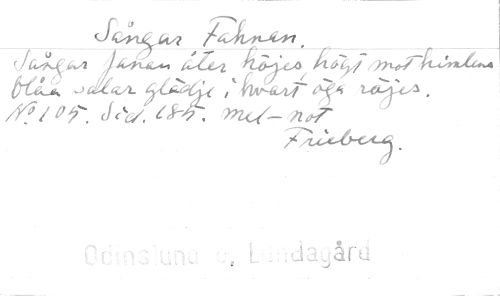 Sångar Fahnan.
Sångar fanan åter höjes, högt mot himlens
blåa salar glädje i hvart öga röjes.
No 105. Sid. 185. mel-not
Frieberg.
Odinslund o. Lundagård